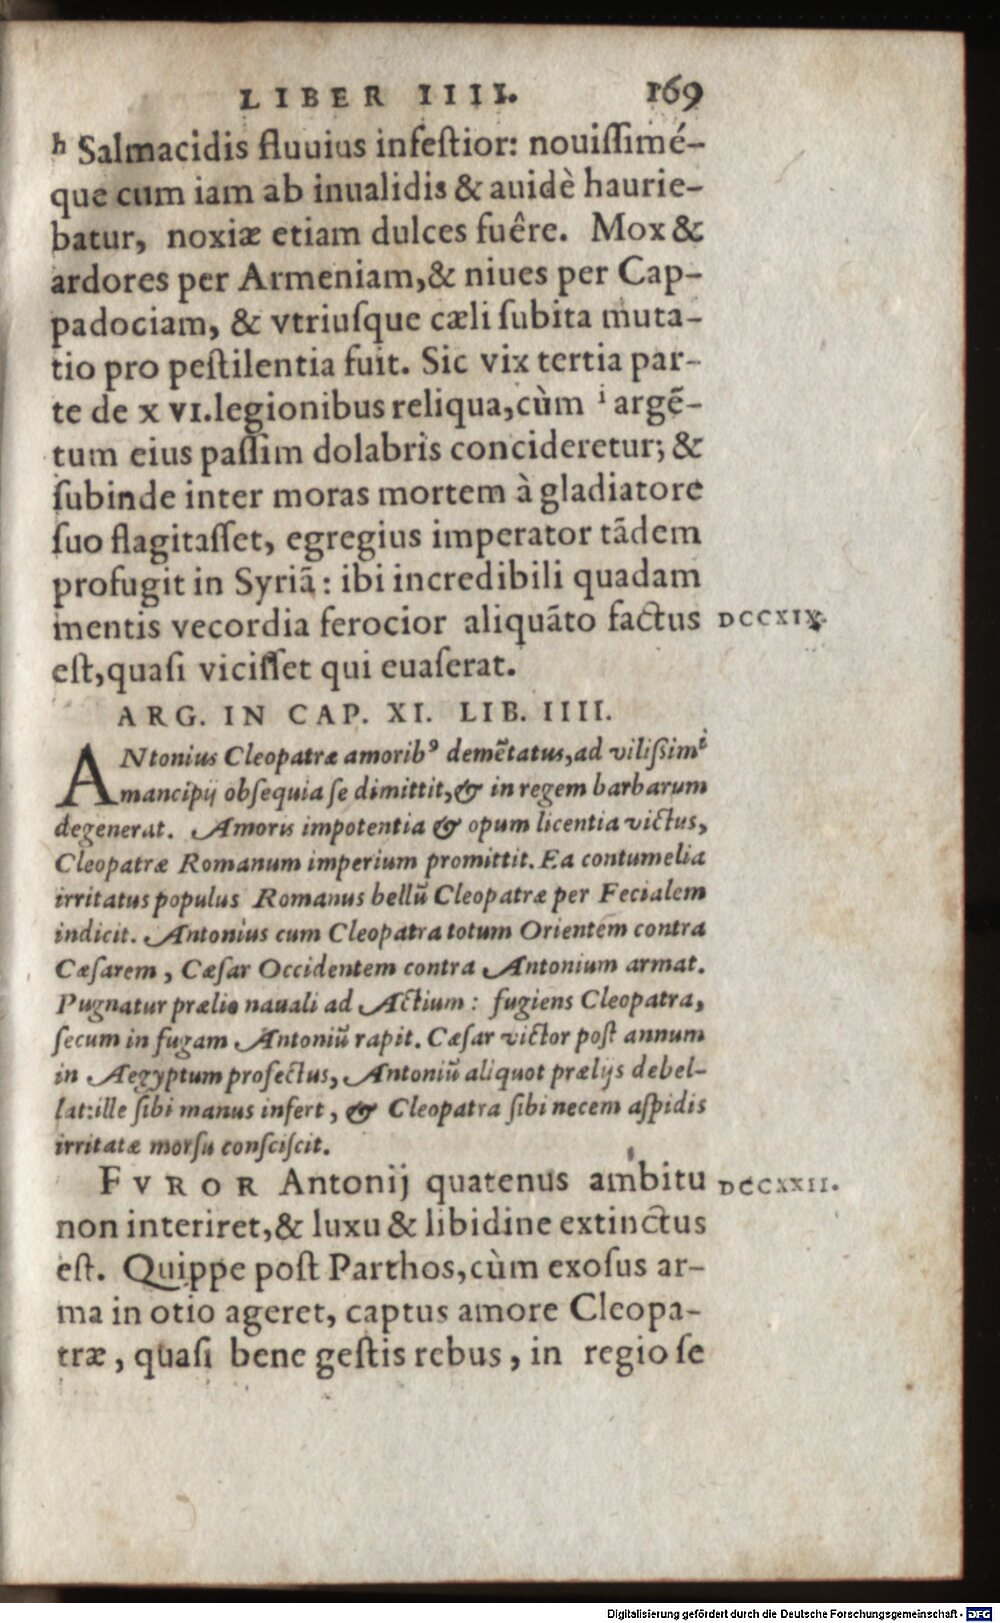 LIBER IIII. 169
h Salmacidis fluuius infeſtior: nouiſſimé-
que cum iam ab inualidis & auidè haurie-
batur, noxiæ etiam dulces fuêre. Mox &
ardores per Armeniam,& niues per Cap-
padociam, & vtriuſque cæli ſubita muta-
tio pro peſtilentia fuit. Sic vix tertia par-
te de x vi.legionibus reliqua,cùm i argẽ-
tum eius paſſim dolabris concideretur; &
ſubinde inter moras mortem à gladiatore
ſuo flagitaſſet, egregius imperator tãdem
profugit in Syriã: ibi incredibili quadam
mentis vecordia ferocior aliquãto factus DCCXIX.
eſt,quaſi viciſſet qui euaſerat.
ARG. IN CAP. XI. LIB. IIII.
ANtonius Cleopatræ amoribꝰ demẽtatus,ad viliſsimi
mancipij obſequia ſe dimittit,& in regem barbarum
degenerat. Amoris impotentia & opum licentia victus,
Cleopatræ Romanum imperium promittit. Ea contumelia
irritatus populus Romanus bellũ Cleopatræ per Fecialem
indicit. Antonius cum Cleopatra totum Orientem contra
Cæſarem, Cæſar Occidentem contra Antonium armat.
Pugnatur prælio nauali ad Actium: fugiens Cleopatra,
ſecum in fugam Antoniũ rapit. Cæſar victor poſt annum
in Aegyptum profectus, Antoniũ aliquot prælijs debel-
lat:ille ſibi manus infert, & Cleopatra ſibi necem aſpidis
irritatæ morſu conſciſcit.
FVROR Antonij quatenus ambitu DCCXXII.
non interiret,& luxu & libidine extinctus
eſt. Quippe poſt Parthos,cùm exoſus ar-
ma in otio ageret, captus amore Cleopa-
træ, quaſi bene geſtis rebus, in regio ſe
Digitalisierung gefördert durch die Deutsche Forschungsgemeinschaft - DFG